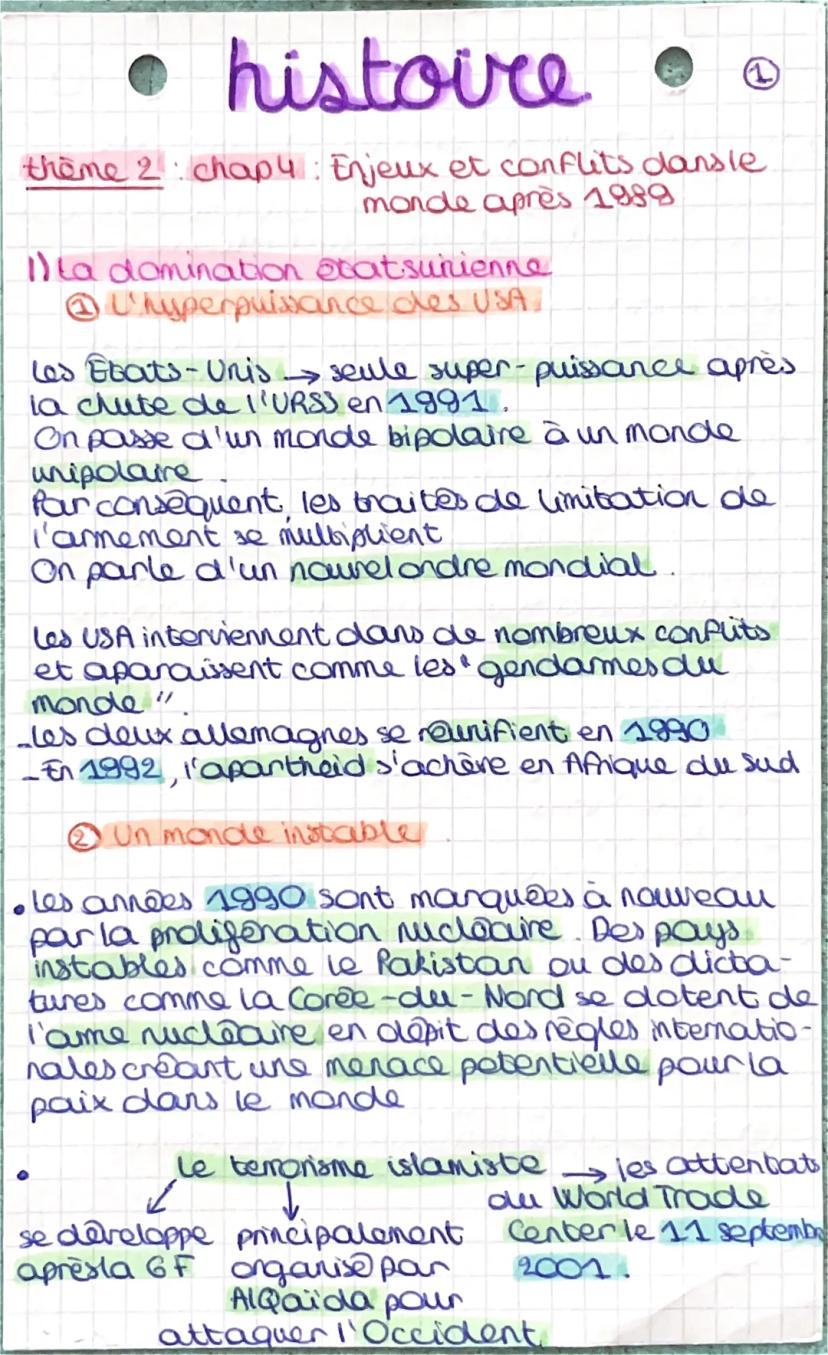 histoire
1
thème 2 : chap 4 : Enjeux et conflits dans le
monde après 1989
I) La domination étatsunienne
① L'hyperpuissance des USA
Les États-Unis → seule super-puissance après
la chute de l'URSS en 1991.
On passe d'un monde bipolaire à un monde
unipolaire.
Par conséquent, les traités de limitation de
l'armement se multiplient
On parle d'un nouvel ordre mondial.
Les USA interviennent dans de nombreux conflits
et aparaissent comme les "gendarmes du
monde".
-Les deux allemagnes se réunifient en 1990
-En 1992, l'apartheid s'achère en Afrique du Sud
② Un monde instable
• Les années 1990 sont marquées à nouveau
par la prolifération nucléaire. Des pays
instables comme le Pakistan ou des dicta-
tures comme la Corée-du-Nord se dotent de
l'arme nucléaire en dépit des règles internatio-
nales créant une menace potentielle pour la
paix dans le monde
• Le terrorisme islamiste → les attentats
du World Trade
Center le 11 septembre
2001.
se développe
après la GF
principalement
organisé par
AlQaïda pour
attaquer l'Occident.